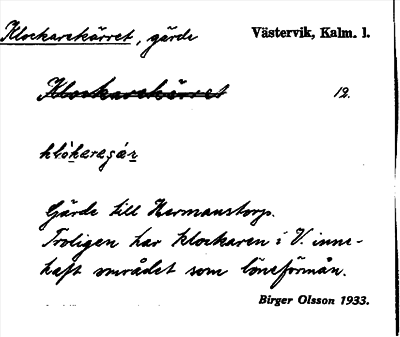 Klockarekärret, gärde Västervik, Kalm. l.
Klockarekärret 12.
Gärde till Hermanstorp.
Troligen har klockaren i V. inne-
haft området som löneförmån.
Birger Olsson 1933.